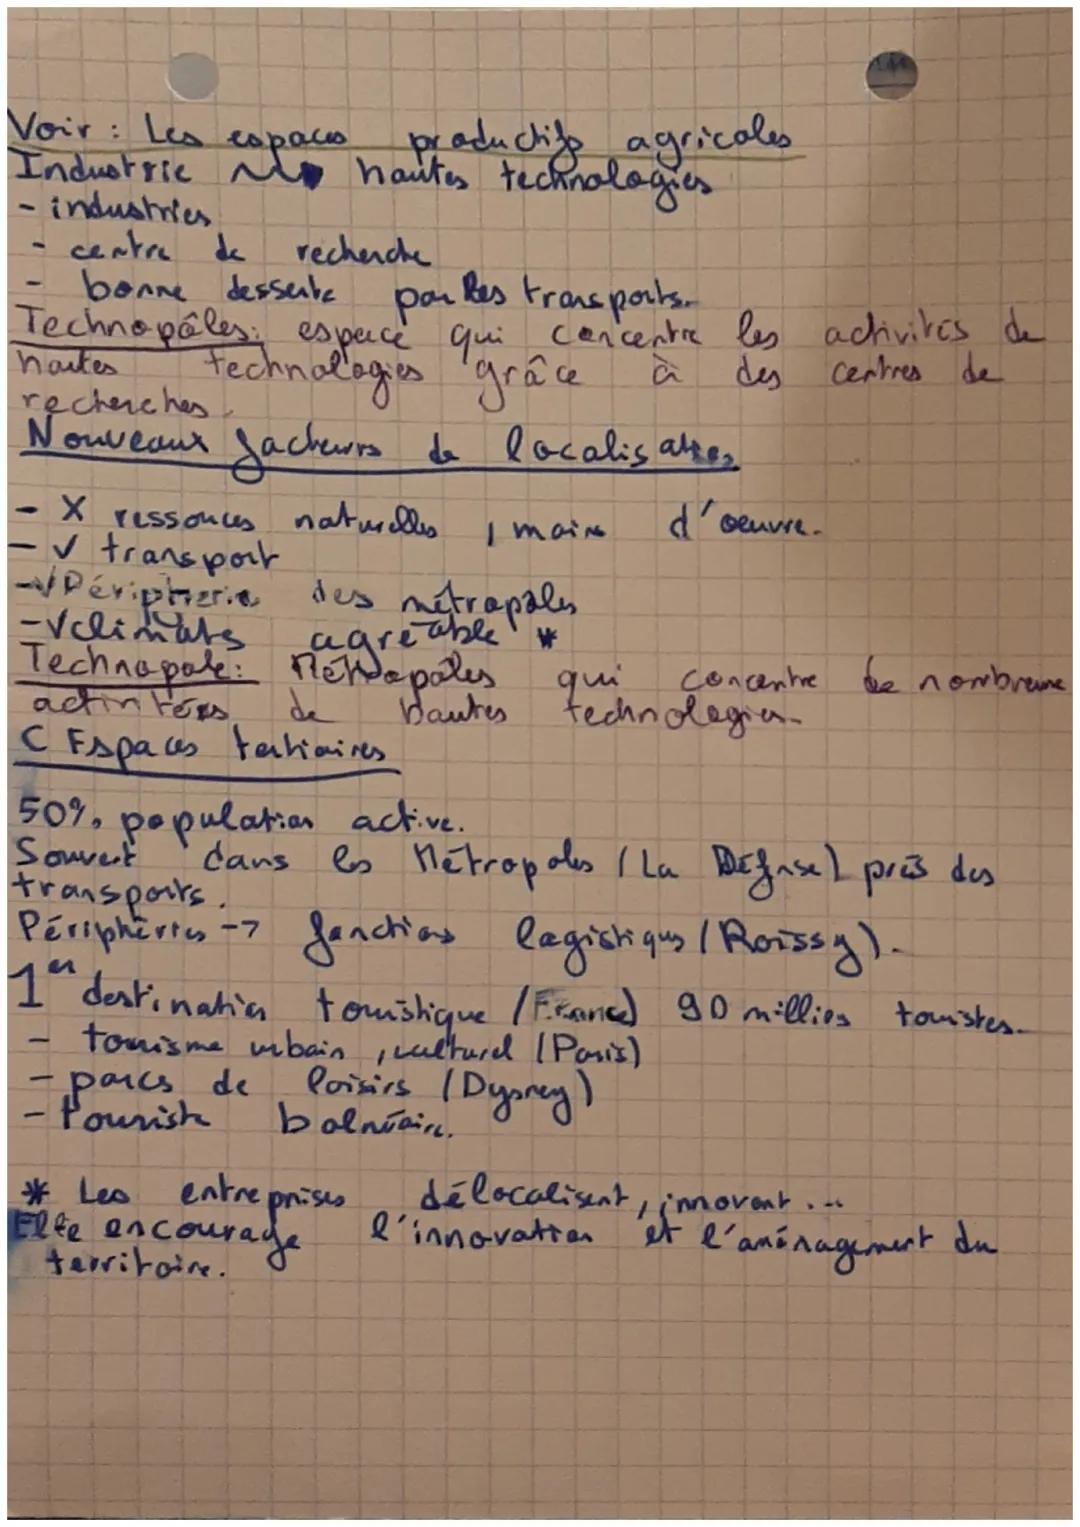 Voir : Les espaces productifs agricoles
Industrie → hautes technologies
- industries
- centre de recherche
- bonne desserte par les transports.
Technopôles: espace qui concentre les activités de
hautes technologies grâce à des centres de
recherches.
Nouveaux facteurs de localisation
- X ressources naturelles, main d'oeuvre.
- √ transport
- √ Périphérie des métropoles
- √ climats agréable *
Technopole: Métropoles qui concentre de nombreuse
activitées de hautes technologies.
C Espaces tertiaires
50% population active.
Souvent dans les Métropoles (La Défense) près des
transports.
Périphéries -> fonctions logistiques (Roissy).
1er destination touristique (France) 90 millions touristes.
- tourisme urbain, culturel (Paris)
- parcs de loisirs (Dysney)
- touriste balnéaire.
* Les entreprises délocalisent, innovent ...
Elle encourage l'innovation et l'aménagement du
territoire.